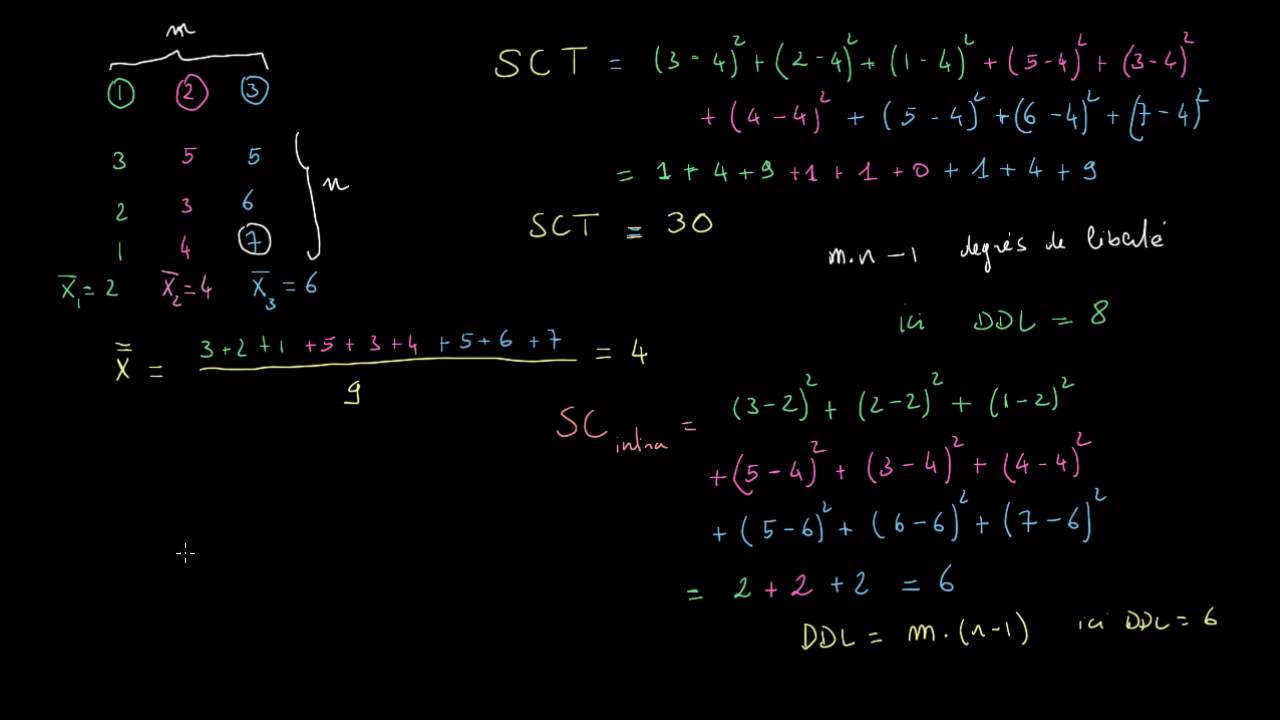 m
1 2 3
3 5 5
2 3 6
1 4 7
n
X̄₁ = 2 X̄₂ = 4 X̄₃ = 6
X̿ = (3+2+1+5+3+4+5+6+7) / 9 = 4
SCT = (3-4)² + (2-4)² + (1-4)² + (5-4)² + (3-4)²
+ (4-4)² + (5-4)² + (6-4)² + (7-4)²
= 1 + 4 + 9 + 1 + 1 + 0 + 1 + 4 + 9
SCT = 30
m.n - 1 degrés de liberté
ici DDL = 8
SC intra = (3-2)² + (2-2)² + (1-2)²
+ (5-4)² + (3-4)² + (4-4)²
+ (5-6)² + (6-6)² + (7-6)²
= 2 + 2 + 2 = 6
DDL = m.(n-1) ici DDL = 6